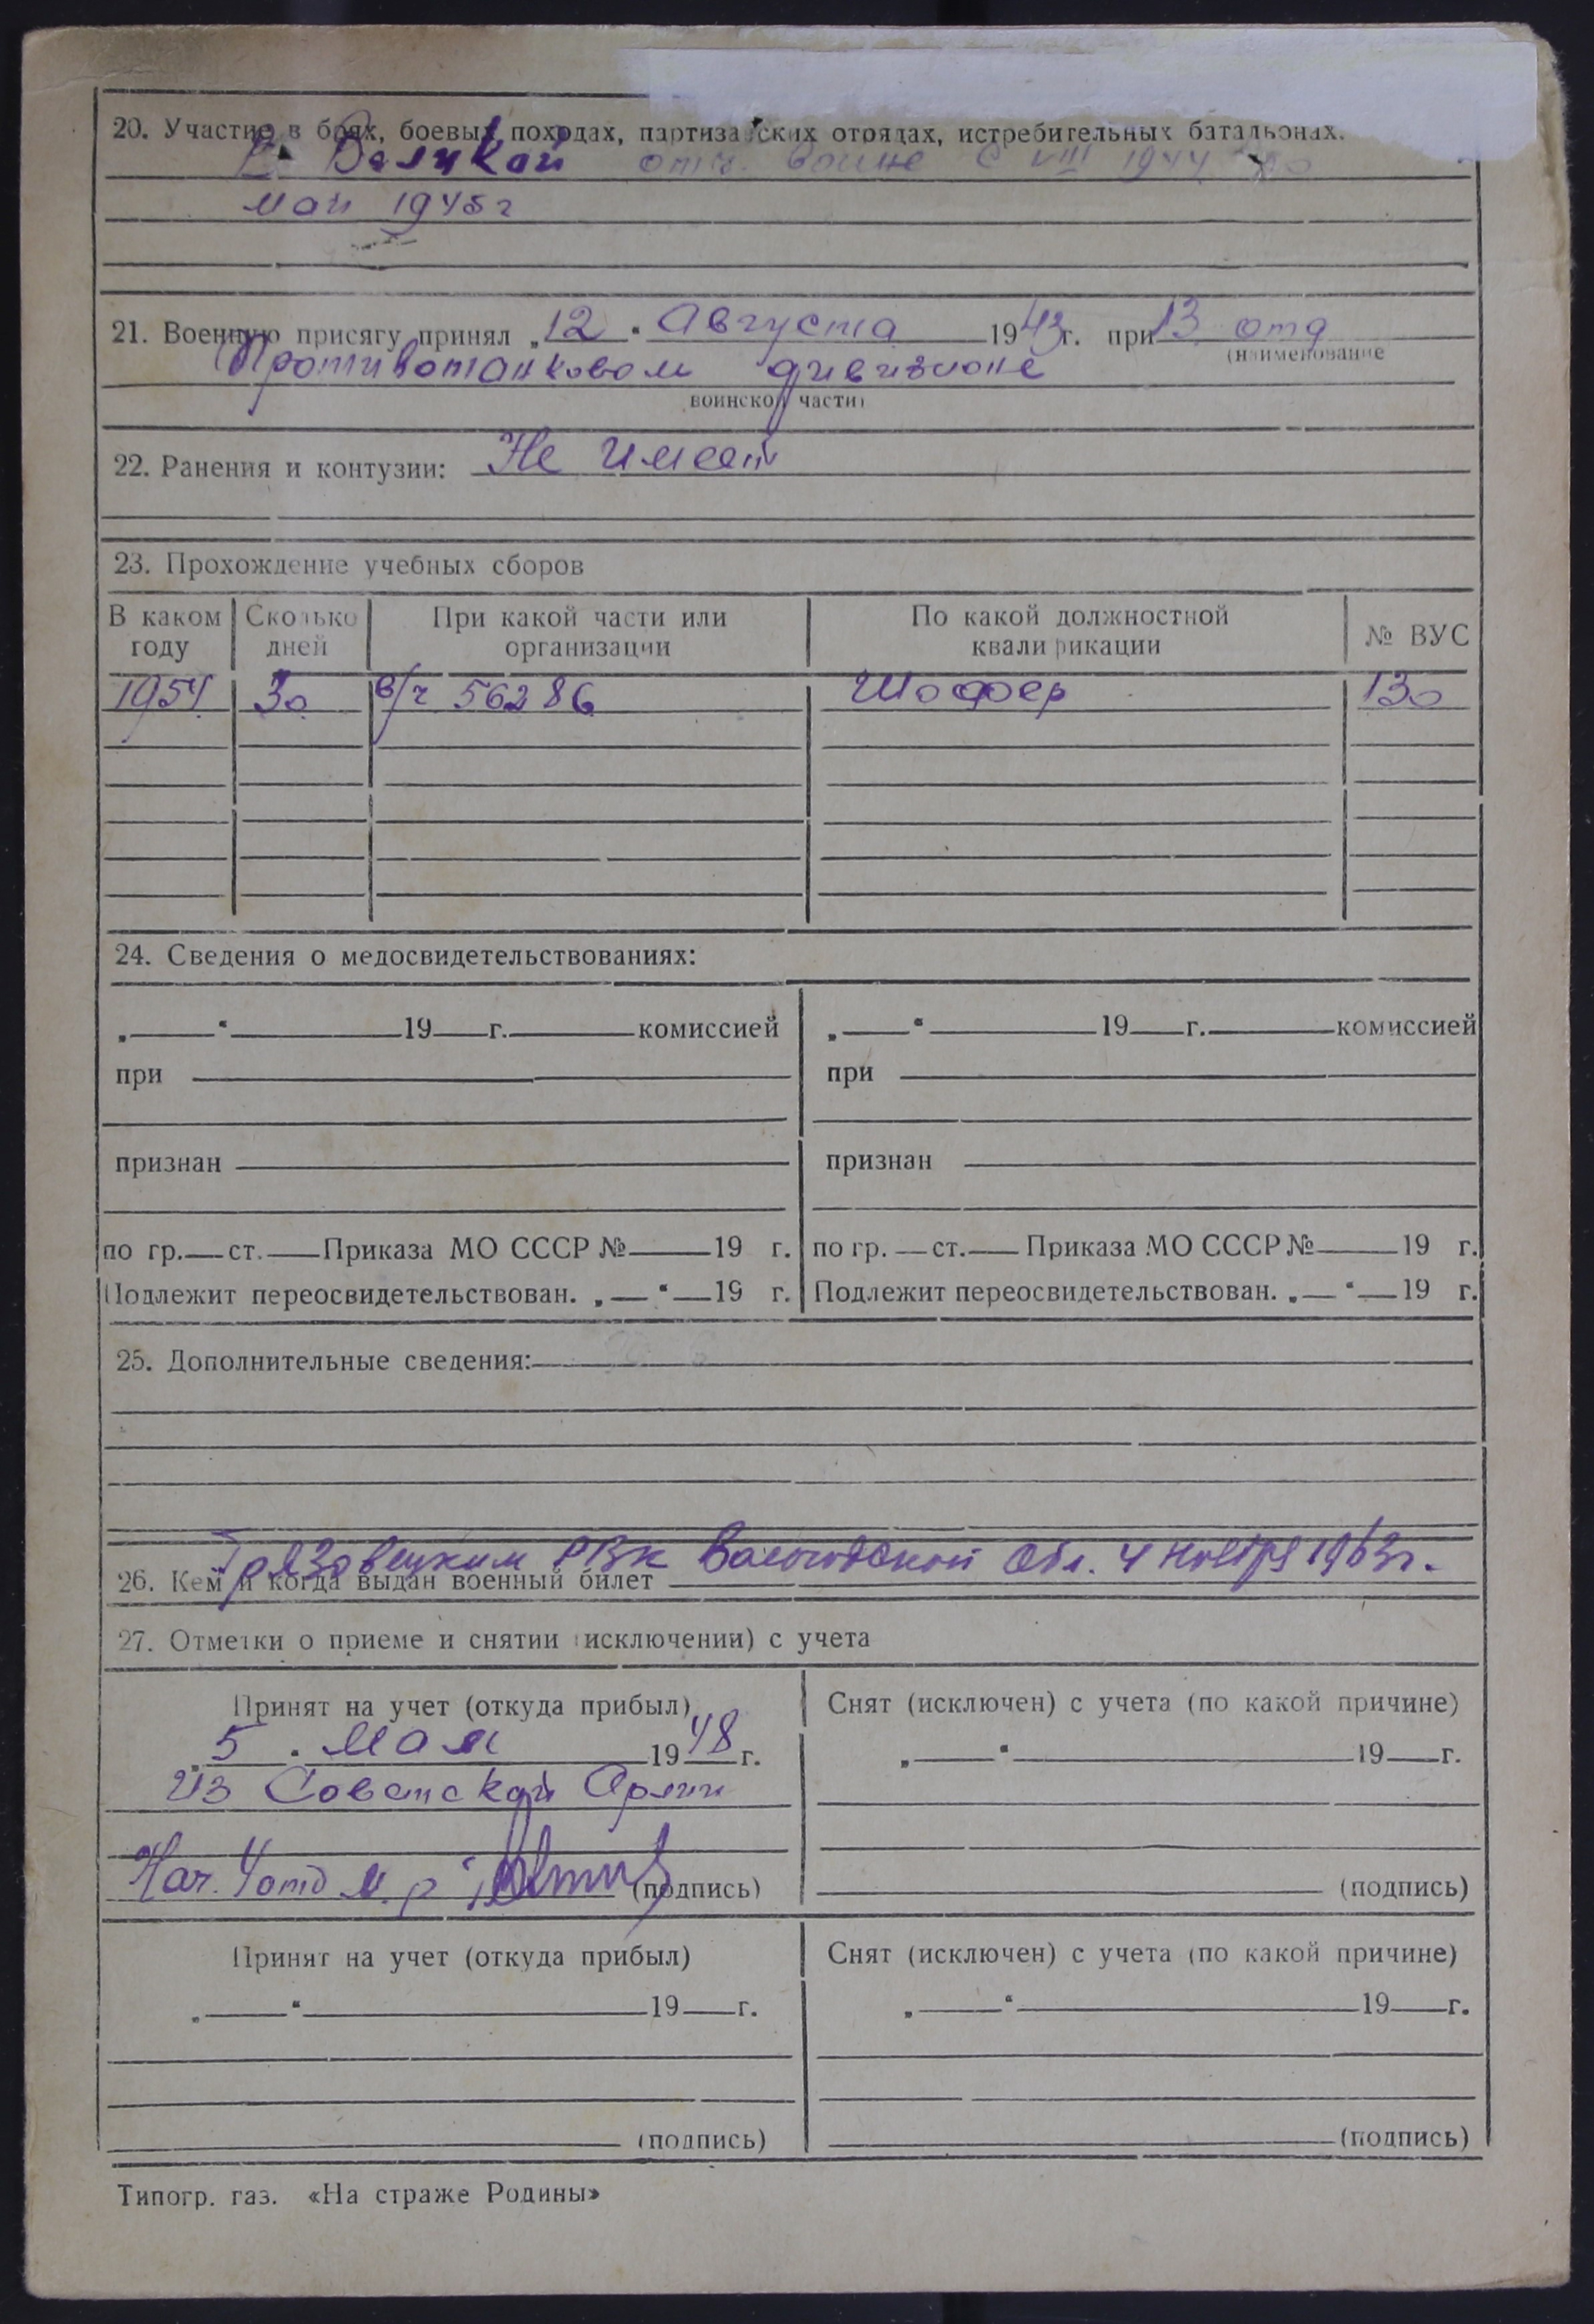 20. Участие в боях, боевых походах, партизанских отрядах, истребительных батальонах.
В Великой отч. войне с VIII 1944 по
май 1945 г
21. Военную присягу принял „12“ Августа 1943 г. при 13 отд
(наименование
Противотанковом дивизионе
воинской части)
22. Ранения и контузии: Не имеет
23. Прохождение учебных сборов
В каком году Сколько дней При какой части или организации По какой должностной квалификации № ВУС
1954 30 в/ч 56286 Шофер 130
24. Сведения о медосвидетельствованиях:
„ “ 19 г. комиссией „ “ 19 г. комиссией
при при
признан признан
по гр. ст. Приказа МО СССР № 19 г. по гр. ст. Приказа МО СССР № 19 г.
Подлежит переосвидетельствован. „ “ 19 г. Подлежит переосвидетельствован. „ “ 19 г.
25. Дополнительные сведения:
Грязовецким РВК Вологодской обл. 4 ноября 1963 г.
26. Кем и когда выдан военный билет
27. Отметки о приеме и снятии (исключении) с учета
Принят на учет (откуда прибыл) Снят (исключен) с учета (по какой причине)
„5“ Мая 1948 г. „ “ 19 г.
Из Советской Армии
Нач. 4 отд (подпись) (подпись)
Принят на учет (откуда прибыл) Снят (исключен) с учета (по какой причине)
„ “ 19 г. „ “ 19 г.
(подпись) (подпись)
Типогр. газ. «На страже Родины»